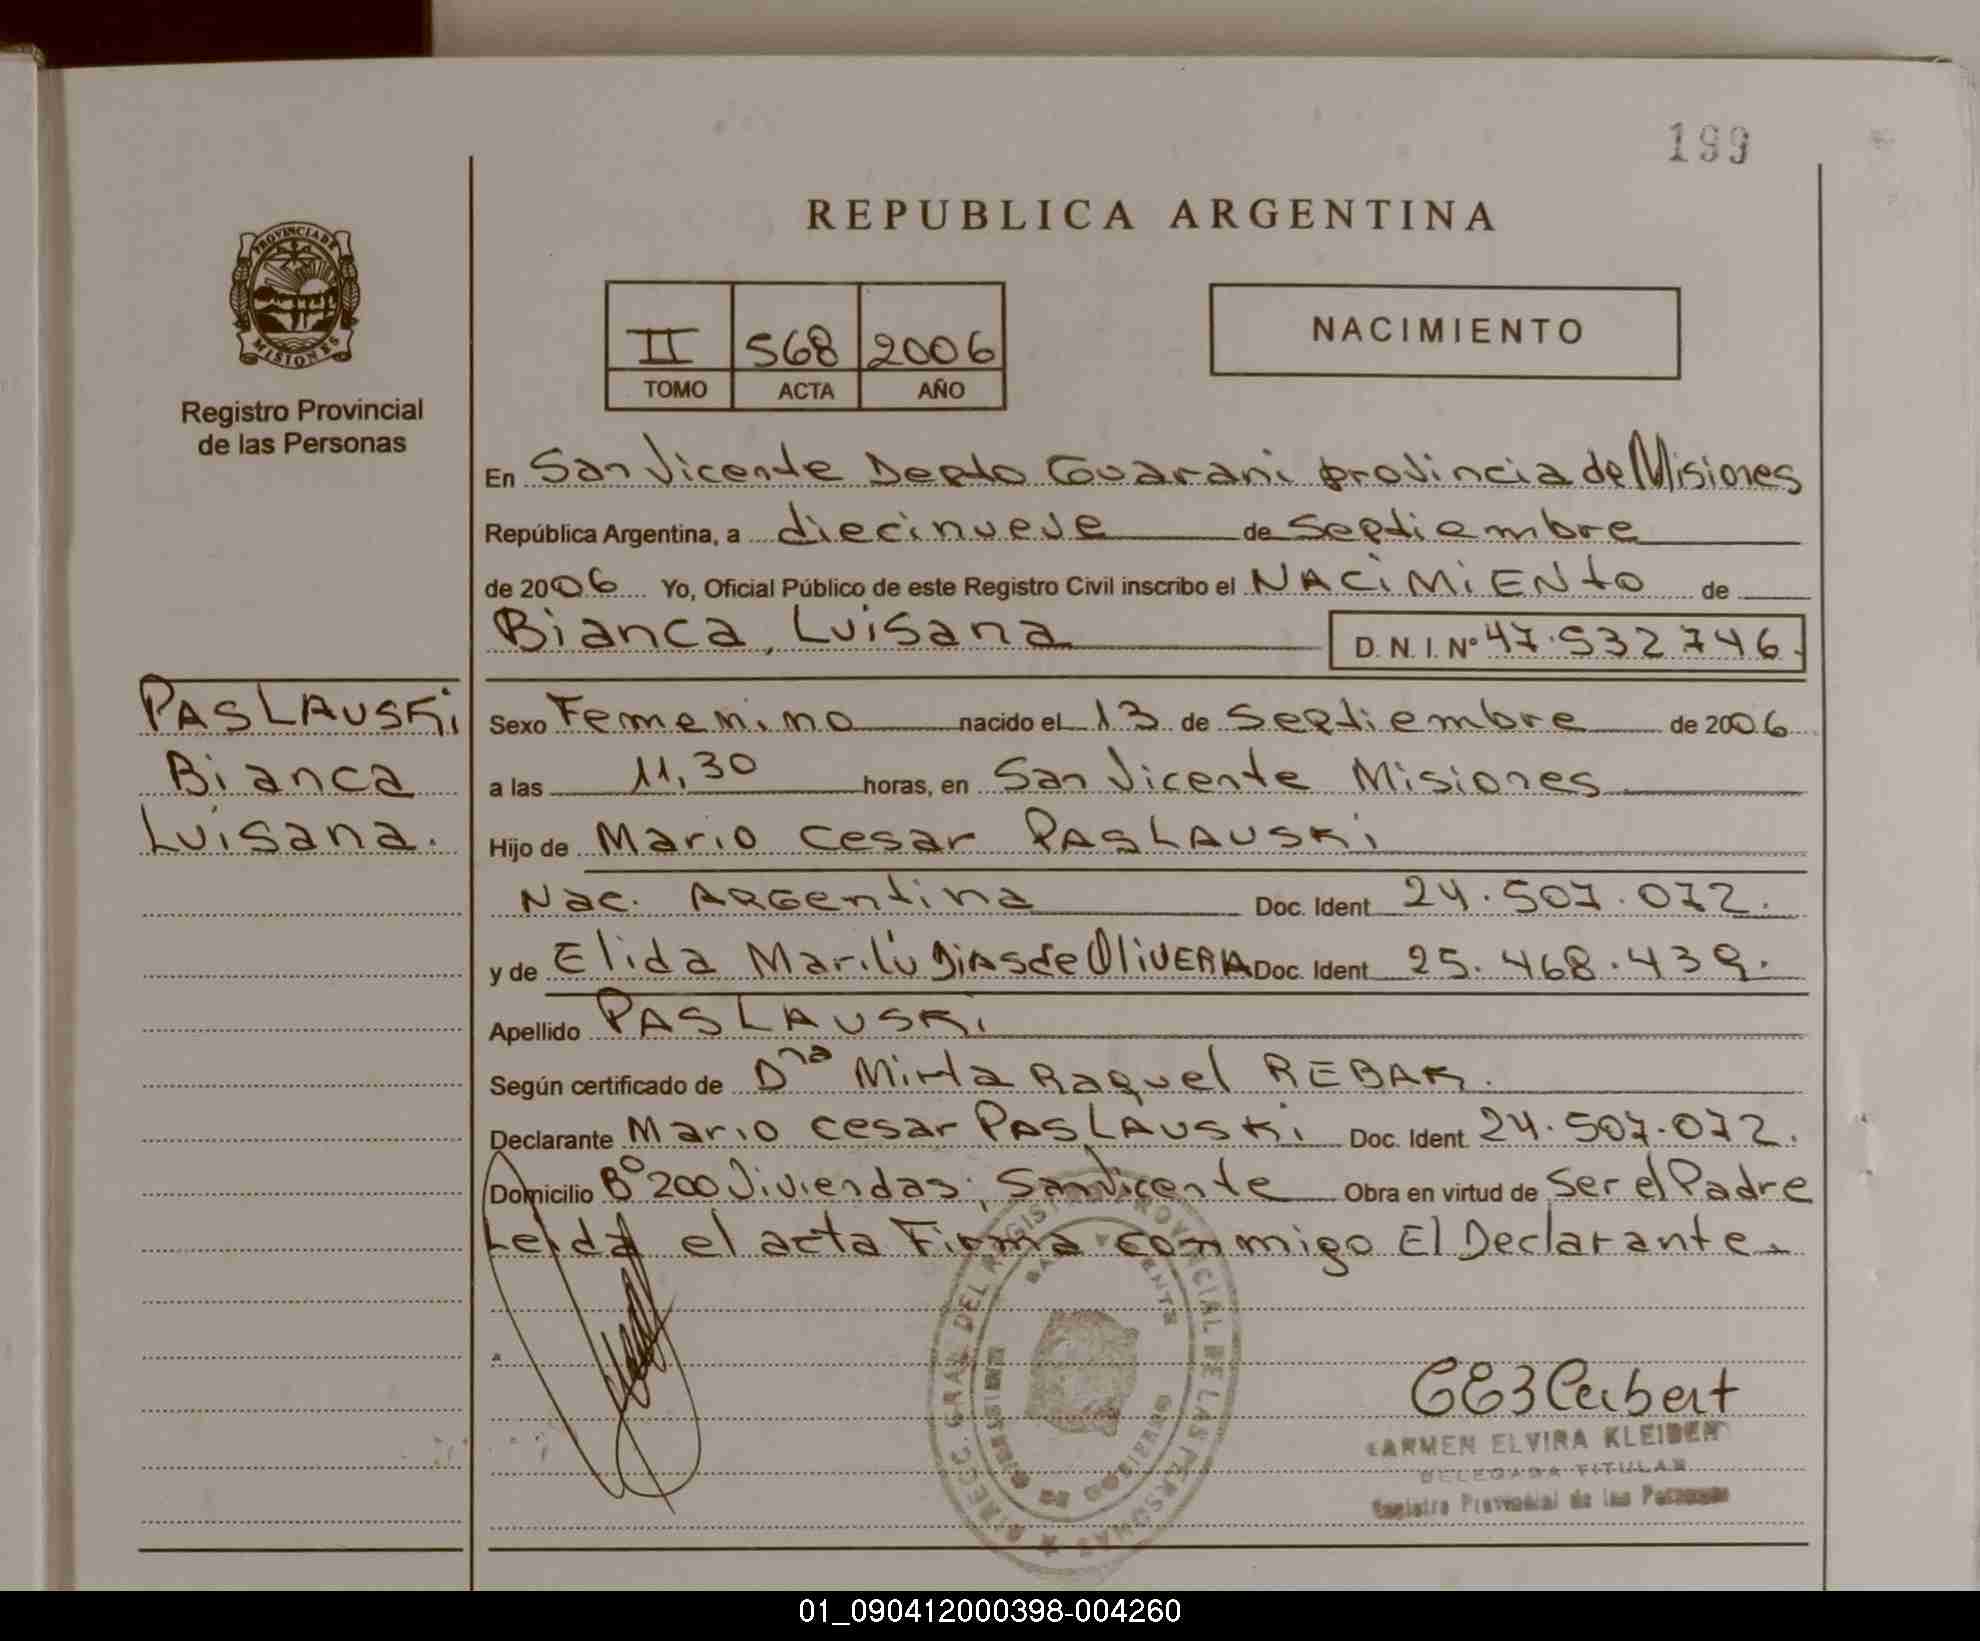 199
REPUBLICA ARGENTINA
PROVINCIA DE
MISIONES
Registro Provincial
de las Personas
II 568 2006
TOMO ACTA AÑO
NACIMIENTO
En San Vicente Depto Guarani provincia de Misiones
República Argentina, a diecinueve de Septiembre
de 2006 Yo, Oficial Público de este Registro Civil inscribo el NACiMiENto de
Bianca, Luisana D. N. I. Nº 47.532746.
PASLAUSKi
Bianca
Luisana.
Sexo Femenino nacido el 13 de Septiembre de 2006
a las 11,30 horas, en San Vicente Misiones
Hijo de Mario Cesar PASLAUSKi
Nac. ARGentina Doc. Ident 24.507.072.
y de Elida Marilú DiAS de OliVERA Doc. Ident 25.468.439.
Apellido PASLAUSKi
Según certificado de Dna Mirta Raquel REBAK.
Declarante Mario Cesar PASLAUSKi Doc. Ident 24.507.072.
Domicilio Bº 200 Viviendas; San Vicente Obra en virtud de Ser el Padre
Leida el acta Firma conmigo El Declarante.
DEL REGISTRO PROVINCIAL DE LAS PERSONAS
CARMEN ELVIRA KLEIBERT
DELEGADA TITULAR
Registro Provincial de las Personas
01_090412000398-004260